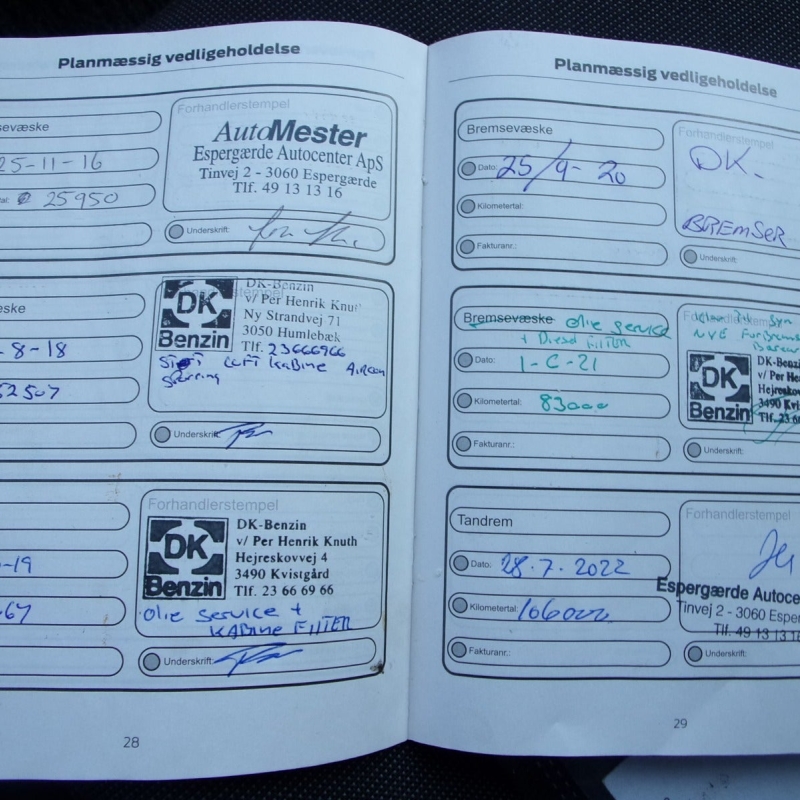 Planmæssig vedligeholdelse
sevæske
25-11-16
tal: 25950
Forhandlerstempel
AutoMester
Espergærde Autocenter ApS
Tinvej 2 - 3060 Espergærde
Tlf. 49 13 13 16
Underskrift:
eske
8-18
52507
DK
Benzin
DK-Benzin
v/ Per Henrik Knut
Ny Strandvej 71
3050 Humlebæk
Tlf. 23666966
LUFT KABINE AIRCON
Underskrift
-19
67
Forhandlerstempel
DK
Benzin
DK-Benzin
v/ Per Henrik Knuth
Hejreskovvej 4
3490 Kvistgård
Tlf. 23 66 69 66
OLIE SERVICE +
KABINE FILTER
Underskrift:
28
Planmæssig vedligeholdelse
Bremsevæske
Dato: 25/9- 20
Kilometertal:
Fakturanr.:
Forhandlerstempel
DK.
BREMSER
Underskrift:
Bremsevæske OLIE SERVICE
+ Diesel FILTER
Dato: 1-6-21
Kilometertal: 83000
Fakturanr.:
Syn
NYE
DK
Benzin
DK-Benzin
v/ Per Hen
Hejresko
3490 Kvis
Tlf. 23 66
Underskrift:
Tandrem
Dato: 28.7.2022
Kilometertal: 106000
Fakturanr.:
Forhandlerstempel
Espergærde Autoce
Tinvej 2 - 3060 Esper
Tlf. 49 13 13 16
Underskrift:
29